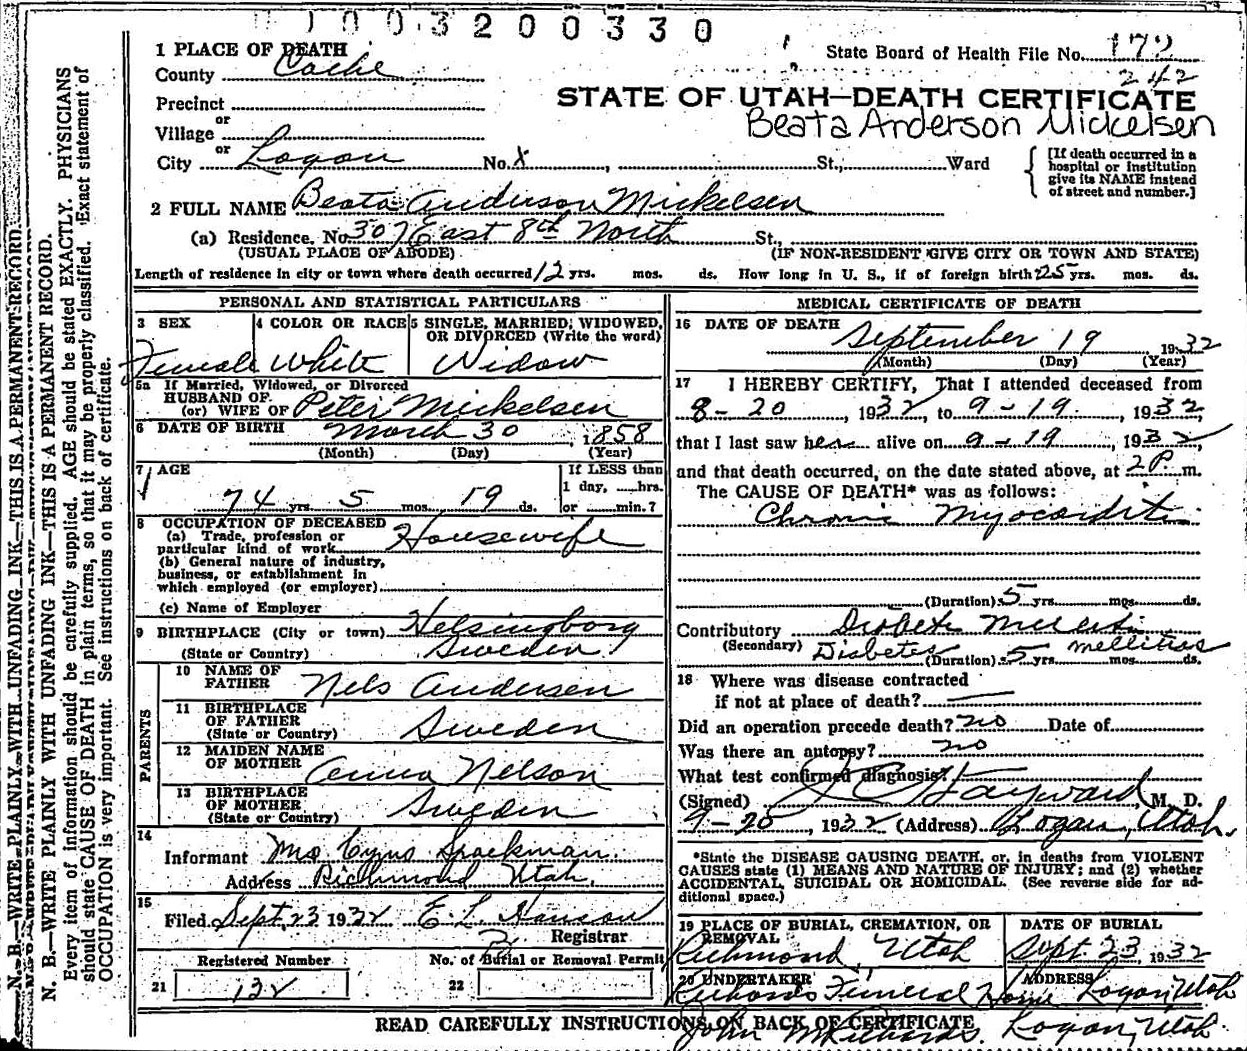 1003200330
1 PLACE OF DEATH
State Board of Health File No. 172
County Cache
242
Precinct
STATE OF UTAH—DEATH CERTIFICATE
or
Village
Beata Anderson Mickelsen
or
City Logan No. X St., Ward
[If death occurred in a
hospital or institution
give its NAME instead
of street and number.]
2 FULL NAME Beata Anderson Mickelsen
(a) Residence. No. 307 East 8th North St.,
(USUAL PLACE OF ABODE) (IF NON-RESIDENT GIVE CITY OR TOWN AND STATE)
Length of residence in city or town where death occurred 12 yrs. mos. ds. How long in U. S., if of foreign birth? 25 yrs. mos. ds.
PERSONAL AND STATISTICAL PARTICULARS
3 SEX
Female
4 COLOR OR RACE
White
5 SINGLE, MARRIED, WIDOWED,
OR DIVORCED (Write the word)
Widow
5a If Married, Widowed, or Divorced
HUSBAND OF
(or) WIFE OF Peter Mickelsen
6 DATE OF BIRTH March 30, 1858
(Month) (Day) (Year)
7 AGE
74 yrs. 5 mos. 19 ds.
If LESS than
1 day, hrs.
or min.?
8 OCCUPATION OF DECEASED
(a) Trade, profession or
particular kind of work Housewife
(b) General nature of industry,
business, or establishment in
which employed (or employer)
(c) Name of Employer
9 BIRTHPLACE (City or town) Helsingborg
(State or Country) Sweden
PARENTS
10 NAME OF
FATHER Nels Andersen
11 BIRTHPLACE
OF FATHER
(State or Country) Sweden
12 MAIDEN NAME
OF MOTHER Anna Nelson
13 BIRTHPLACE
OF MOTHER
(State or Country) Sweden
14
Informant Mrs Cyrus Spackman
Address Richmond Utah.
15
Filed Sept. 23 1932 E. L. Hanson
Registrar
Registered Number
21 132
No. of Burial or Removal Permit
22
MEDICAL CERTIFICATE OF DEATH
16 DATE OF DEATH
September 19 1932
(Month) (Day) (Year)
17 I HEREBY CERTIFY, That I attended deceased from
8-20, 1932, to 9-19, 1932
that I last saw her alive on 9-19, 1932,
and that death occurred, on the date stated above, at 2 P. m.
The CAUSE OF DEATH* was as follows:
Chronic Myocarditis
(Duration) 5 yrs. mos. ds.
Contributory Diabetes Mellitis
(Secondary) Diabetes mellitias
(Duration) 5 yrs. mos. ds.
18 Where was disease contracted
if not at place of death?
Did an operation precede death? no Date of
Was there an autopsy? no
What test confirmed diagnosis?
(Signed) J C Hayward, M. D.
9-20, 1932 (Address) Logan, Utah.
*State the DISEASE CAUSING DEATH, or, in deaths from VIOLENT
CAUSES state (1) MEANS AND NATURE OF INJURY; and (2) whether
ACCIDENTAL, SUICIDAL OR HOMICIDAL. (See reverse side for ad-
ditional space.)
19 PLACE OF BURIAL, CREMATION, OR
REMOVAL
Richmond, Utah
DATE OF BURIAL
Sept. 23, 1932
20 UNDERTAKER
Richards Funeral Home
ADDRESS
Logan, Utah
John M Richards. Logan, Utah.
READ CAREFULLY INSTRUCTIONS ON BACK OF CERTIFICATE
N. B.—WRITE PLAINLY WITH UNFADING INK—THIS IS A PERMANENT RECORD.
N. B.—WRITE PLAINLY WITH UNFADING INK—THIS IS A PERMANENT RECORD.
Every item of information should be carefully supplied. AGE should be stated EXACTLY. PHYSICIANS
should state CAUSE OF DEATH in plain terms, so that it may be properly classified. Exact statement of
OCCUPATION is very important. See instructions on back of certificate.